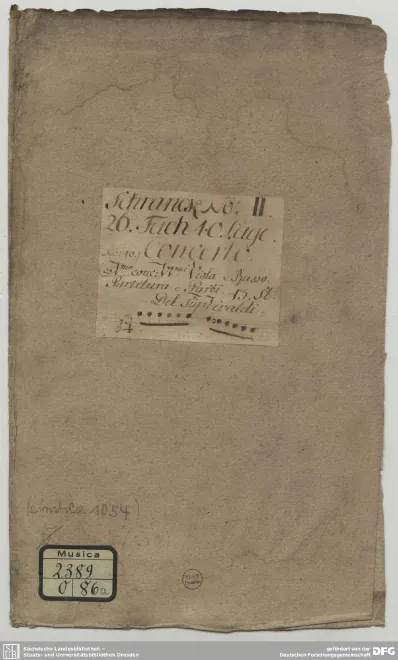 Schranck No: II.
26. Fach 10. Lage.
No: 10.) Concerto.
V.no conc: V.ni Viola e Basso.
Partitura e Parti. 13. St.
Del Sig.r Vivaldi.
1054)
Musica
2389
O 86a
Sächsische Landesbibliothek –
Staats- und Universitätsbibliothek Dresden
gefördert von der
Deutschen Forschungsgemeinschaft DFG